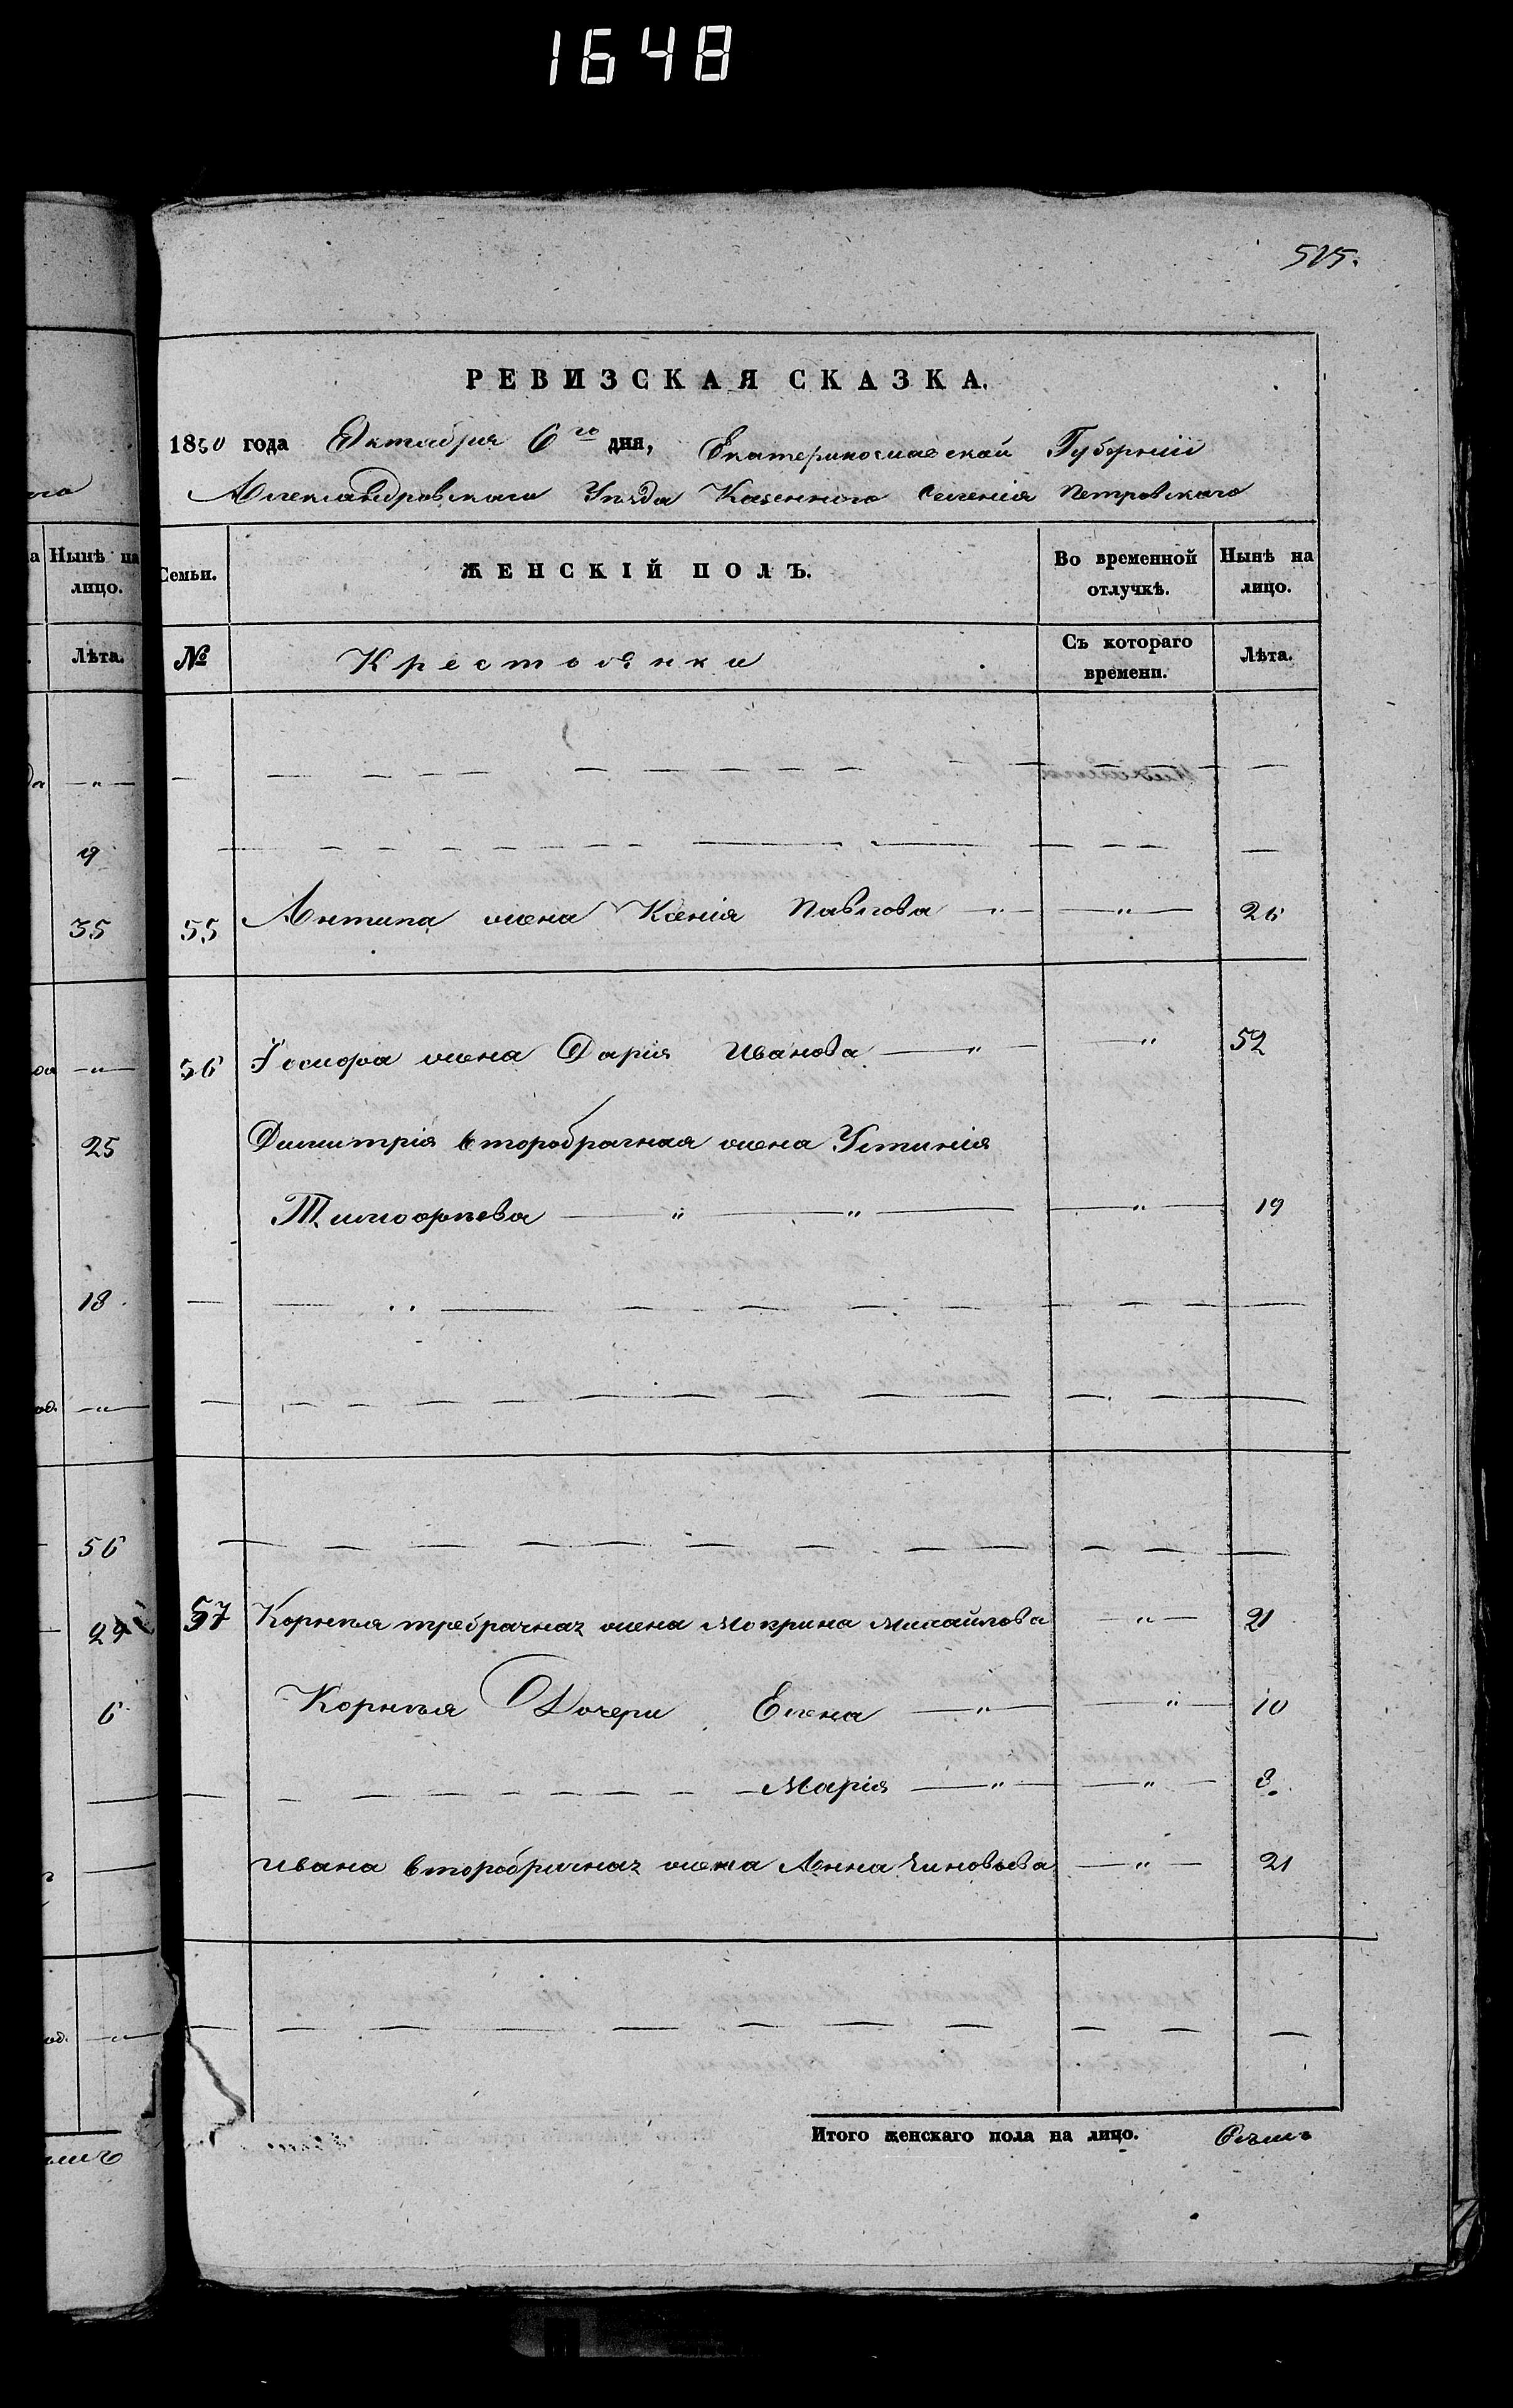 1648
515.
РЕВИЗСКАЯ СКАЗКА.
1850 года Октября 6го дня, Екатеринославской Губерніи
Александровскаго Уѣзда Казеннаго Селенія Петровскаго
Нынѣ на лицо.
Семьи.
ЖЕНСКІЙ ПОЛЪ.
Во временной отлучкѣ.
Нынѣ на лицо.
Лѣта.
№
Крестьянки
Съ котораго времени.
Лѣта.
9
35 55 Антипа жена Ксенія Павлова — " — — " — 26
56 Іосифа жена Дарія Иванова — " — — " 52
25 Димитрія второбрачная жена Устинія
Тимофѣева — " — " — — " — 19
18
56
29 57 Корнѣя требрачная жена Мокрина Михайлова — " — 21
6 Корнѣя Дочери Елена — " — — " — 10
Марія — " — — " — 8.
Ивана второбрачная жена Анна Зиновьева — " — 21
Итого женскаго пола на лицо. Семь